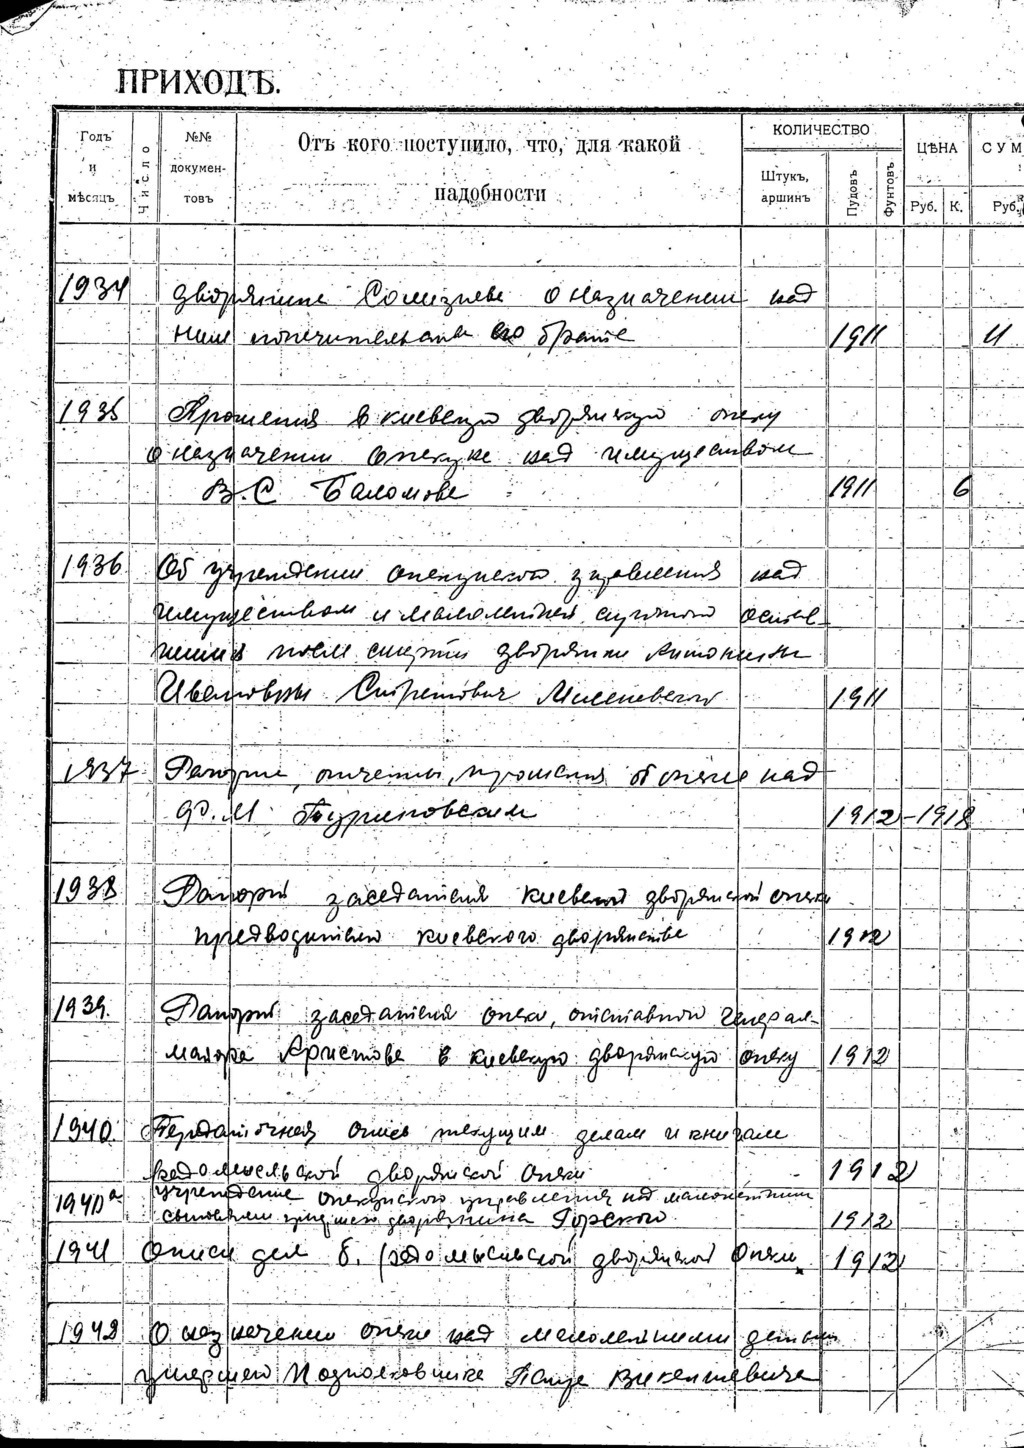 ПРИХОДЪ.
Годъ и мѣсяцъ
Число
№№ документовъ
Отъ кого поступило, что, для какой надобности
КОЛИЧЕСТВО
Штукъ, аршинъ
Пудовъ
Фунтовъ
ЦѢНА
Руб. К.
СУМ
Руб.
1934 дворянина о назначении над
ним попечительства его брата 1911 11
1935 Прошения в киевскую дворянскую опеку
о назначении опекуна над имуществом
В. С. Баломова 1911 6
1936 Об учреждении опекунского управления над
имуществом и малолетней сиротою остав-
шимися после смерти дворянки Антонины
Ивановны 1911
1937 Рапорты, отчеты, прошения об опеке над
Ф. М 1912-1918
1938 Рапорт заседателя киевской дворянской опеки
предводителю киевского дворянства 1912
1939. Рапорт заседателя опеки, отставного генерал-
майора Аристова в киевскую дворянскую опеку 1912
1940. Передаточная опись текущим делам и книгам
радомысльской дворянской опеки 1912
1940а учреждение опекунского управления над малолетними
сыновьями умершего дворянина Горского 1912
1941 Описи дел б. радомысльской дворянской опеки 1912
1942 О назначении опеки над малолетними детьми
умершего Подполковника Викентиевича